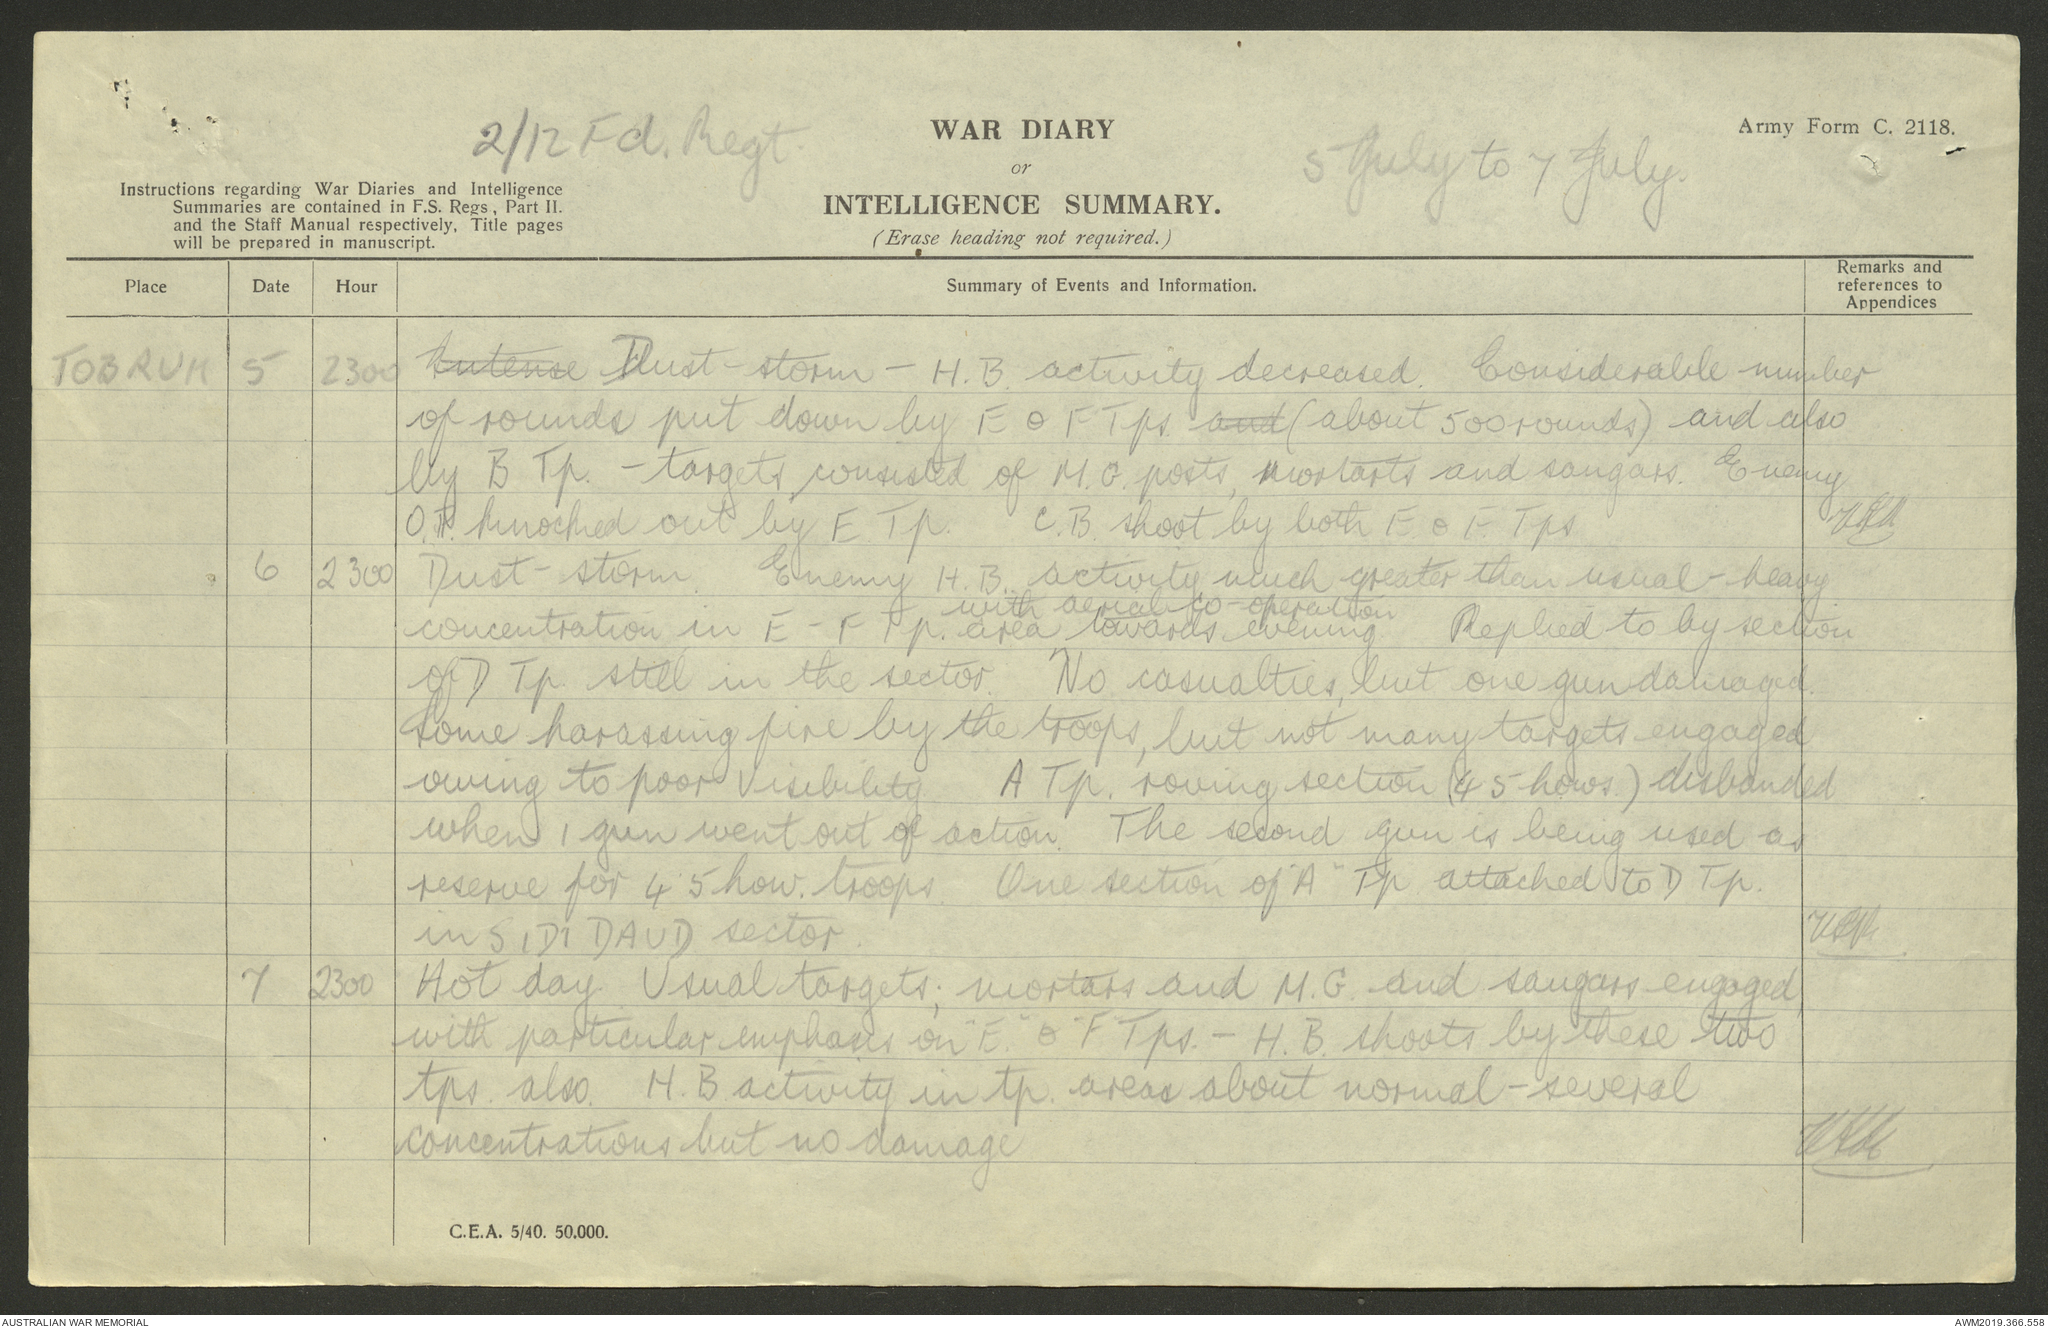 2/12 Fd. Regt.
WAR DIARY
or
INTELLIGENCE SUMMARY.
(Erase heading not required.)
5 July to 7 July.
Army Form C. 2118.
Instructions regarding War Diaries and Intelligence
Summaries are contained in F.S. Regs, Part II.
and the Staff Manual respectively, Title pages
will be prepared in manuscript.
Place Date Hour Summary of Events and Information. Remarks and references to Appendices
TOBRUK 5 2300 Intense Dust-storm - H.B. activity decreased. Considerable number
of rounds put down by E & F Tps. and (about 500 rounds) and also
by B Tp. - targets consisted of M.G. posts, mortarts and sangars. Enemy
O.P. knocked out by E Tp. C.B. shoot by both E & F Tps
6 2300 Dust-storm. Enemy H.B. activity much greater than usual - heavy
with aerial co-operation
concentration in E - F Tp. area towards evening Replied to by section
of D Tp. still in the sector. No casualties, but one gun damaged.
Some harassing fire by the troops, but not many targets engaged
owing to poor visibility A Tp. roving section (4 5 hows.) disbanded
when 1 gun went out of action. The second gun is being used as
reserve for 4.5 how. troops. One section of "A" Tp attached to D Tp.
in SIDI DAUD sector.
7 2300 Hot day. Usual targets; mortars and M.G. and sangars engaged,
with particular emphasis on "E" & "F" Tps. - H.B. shoots by these two
tps. also. H.B activity in tp. areas about normal - several
concentrations but no damage
C.E.A. 5/40. 50,000.
AUSTRALIAN WAR MEMORIAL
AWM2019.366.558